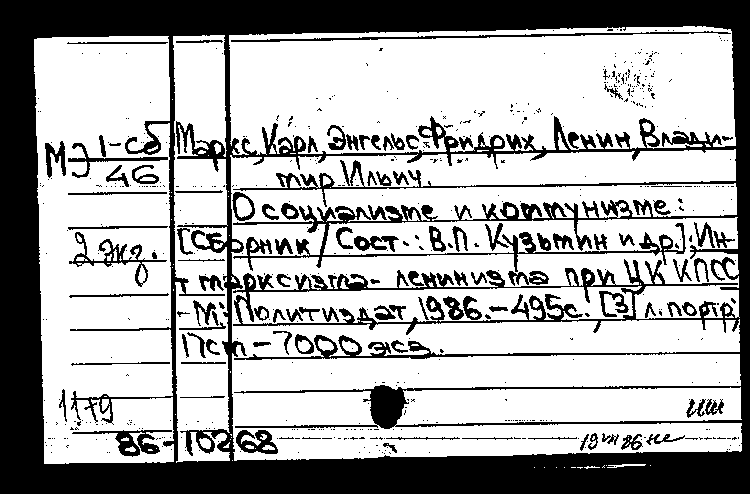 МЭ 1-сб
46
Маркс, Карл, Энгельс, Фридрих, Ленин, Влади-
мир Ильич.
О социализме и коммунизме:
2 экз.
[Сборник / Сост.: В.П. Кузьмин и др.]; Ин-
т марксизма-ленинизма при ЦК КПСС
-М.: Политиздат, 1986.-495с., [3] л. портр;
17см.-7000 экз.
1179
86-10268